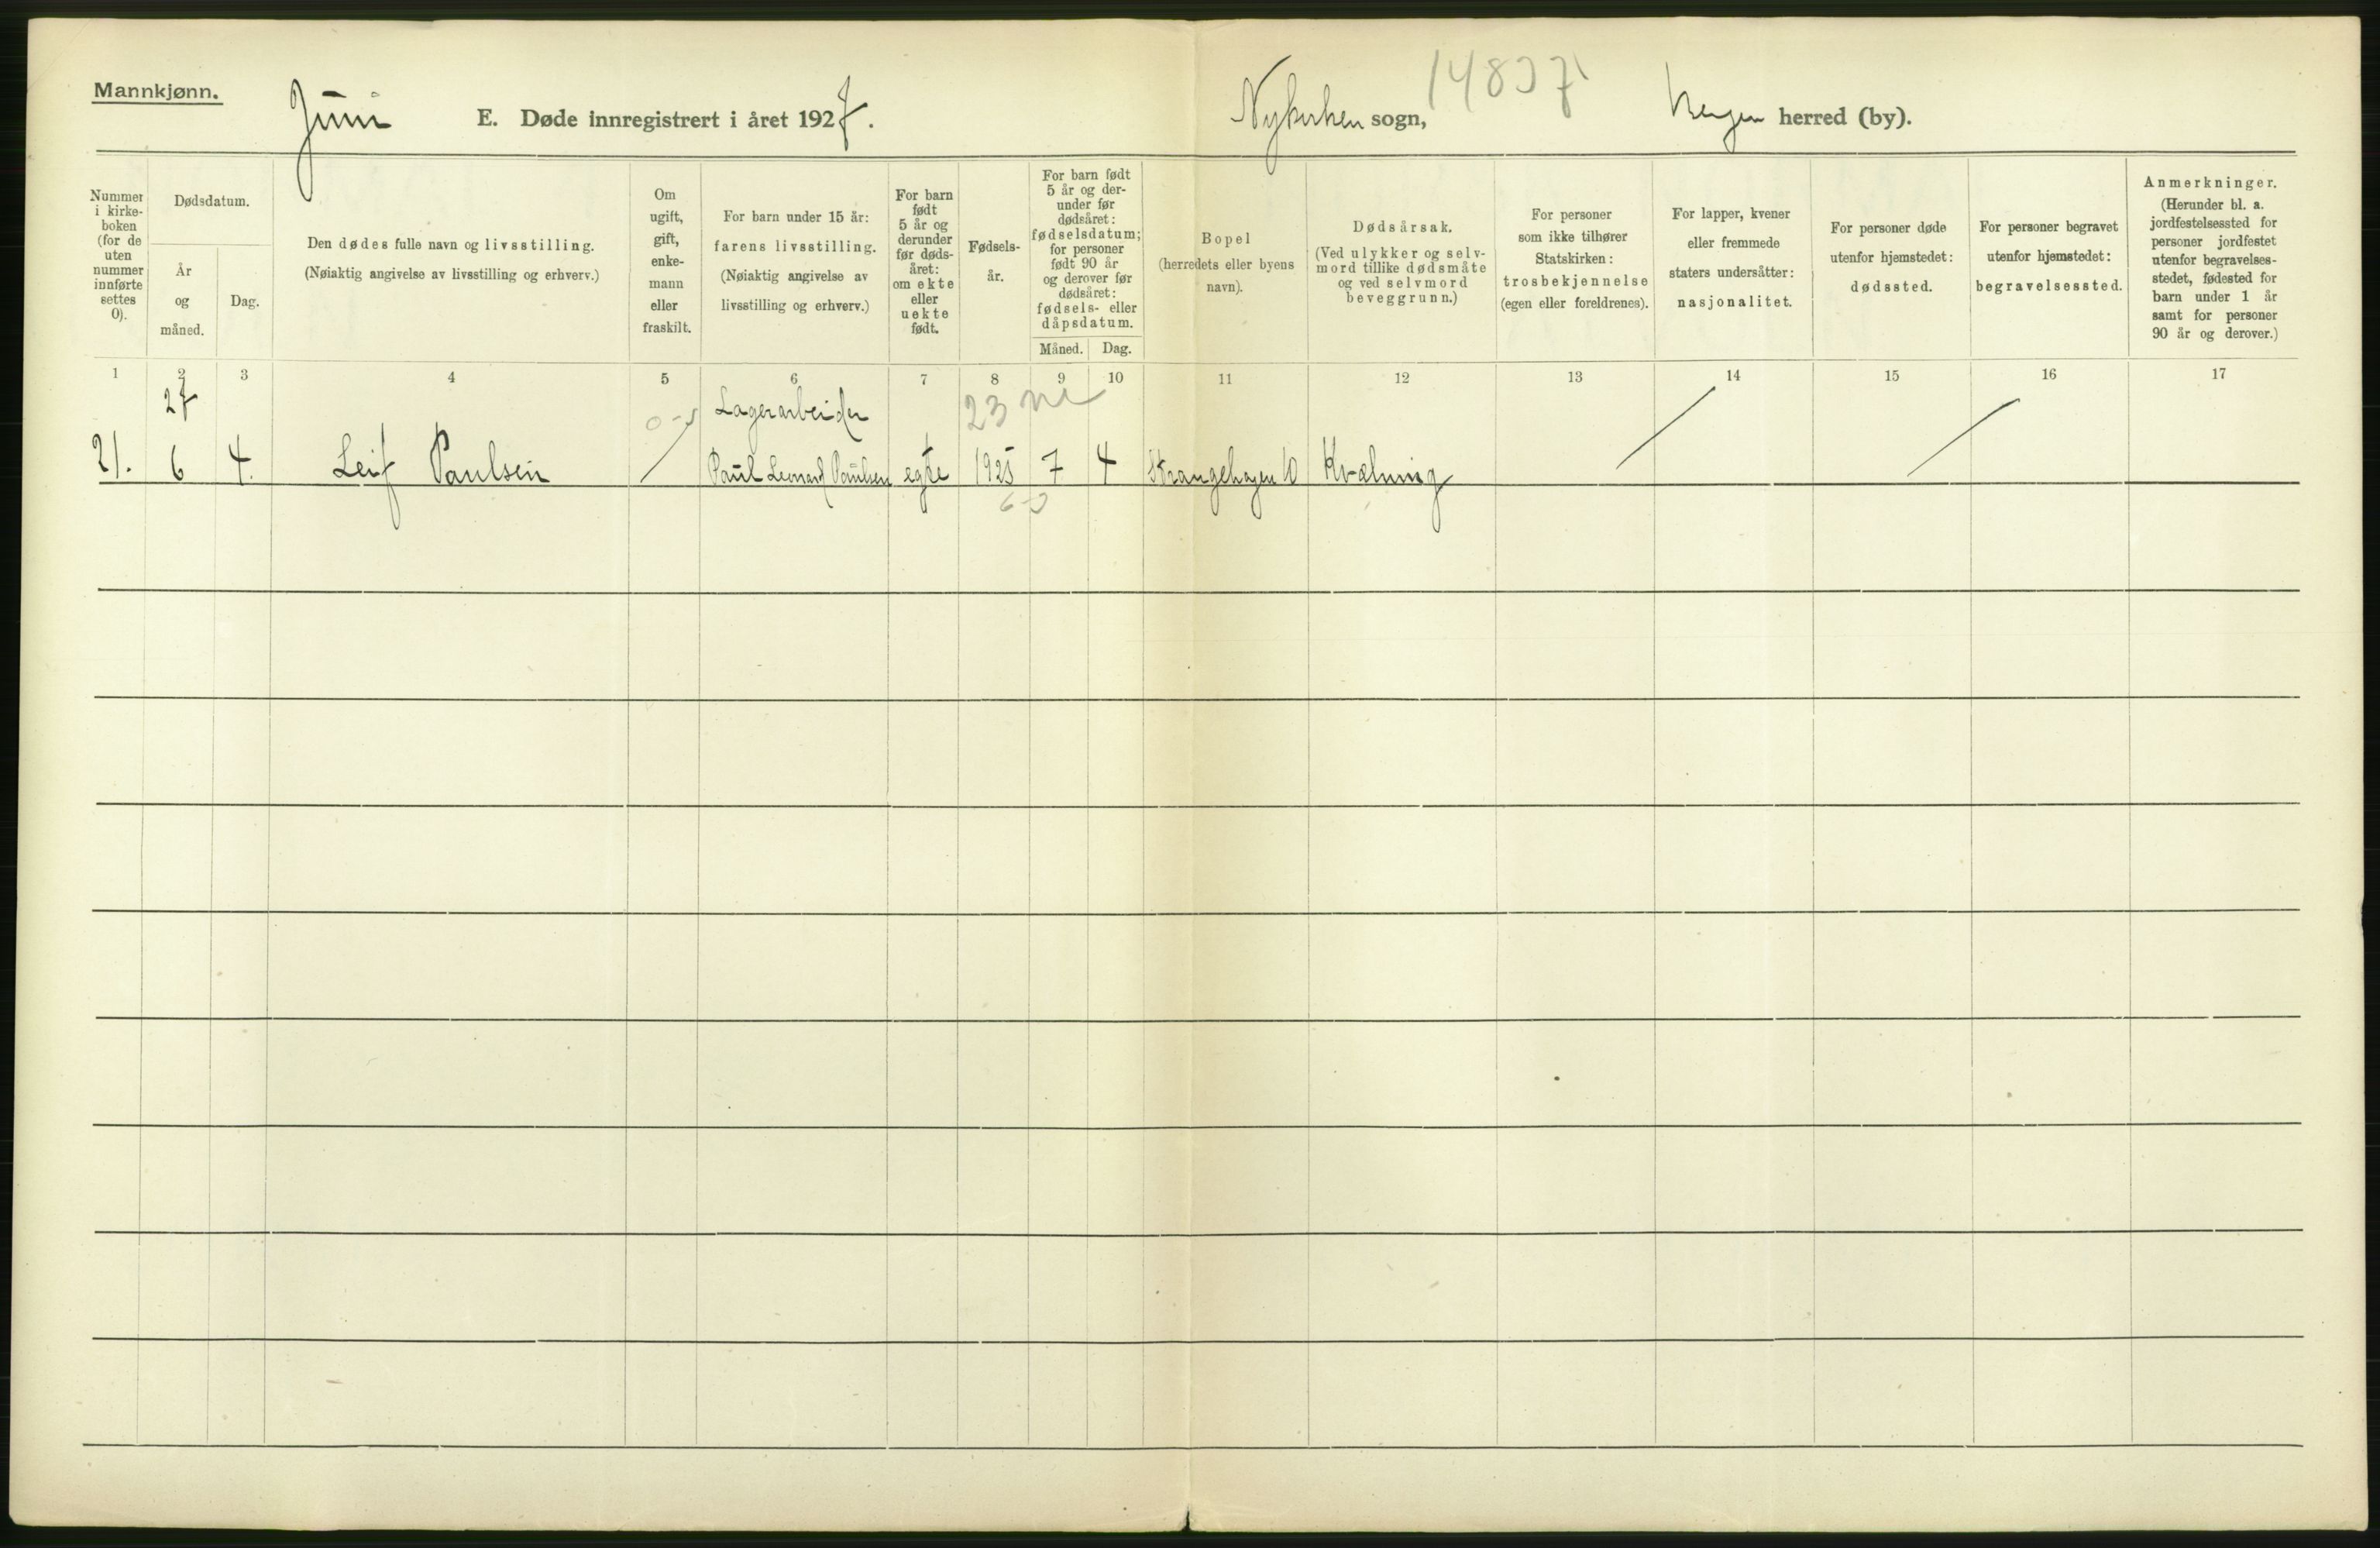 Mannkjønn.
Juni E. Døde innregistrert i året 1927. Nykirken sogn, Bergen herred (by).
Nummer i kirke- boken (for de uten nummer innførte settes 0).
Dødsdatum.
År og måned.
Dag.
Den dødes fulle navn og livsstilling.
(Nøiaktig angivelse av livsstilling og erhverv.)
Om ugift, gift, enke- mann eller fraskilt.
For barn under 15 år:
farens livsstilling.
(Nøiaktig angivelse av
livsstilling og erhverv.)
For barn født 5 år og derunder før døds- året: om ekte eller uekte født.
Fødsels- år.
For barn født 5 år og der- under før dødsåret: fødselsdatum; for personer født 90 år og derover før dødsåret: fødsels- eller dåpsdatum.
Måned. Dag.
Bopel
(herredets eller byens
navn).
Dødsårsak.
(Ved ulykker og selv- mord tillike dødsmåte og ved selvmord beveggrunn.)
For personer
som ikke tilhører
Statskirken:
trosbekjennelse
(egen eller foreldrenes).
For lapper, kvener
eller fremmede
staters undersåtter:
nasjonalitet.
For personer døde
utenfor hjemstedet:
dødssted.
For personer begravet
utenfor hjemstedet:
begravelsessted.
Anmerkninger.
(Herunder bl. a.
jordfestelsessted for
personer jordfestet
utenfor begravelses-
stedet, fødested for
barn under 1 år
samt for personer
90 år og derover.)
1 2 3 4 5 6 7 8 9 10 11 12 13 14 15 16 17
27 Lagerarbeider 23
21. 6 4. Leif Paulsen Paul Leonard Paulsen egte 1925 7 4 Strangehagen 10 Kvælning